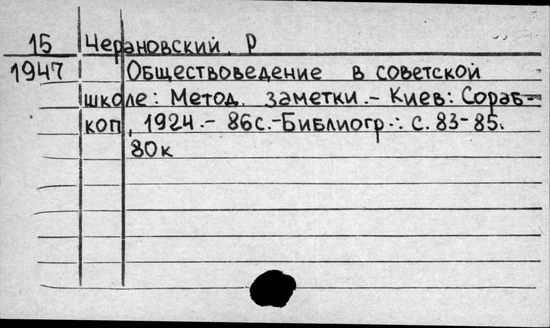 15 Черановский, Р
1947 Обществоведение в советской
школе: Метод. заметки.- Киев: Сораб-
коп, 1924.- 86с.-Библиогр.: с. 83-85.
80к